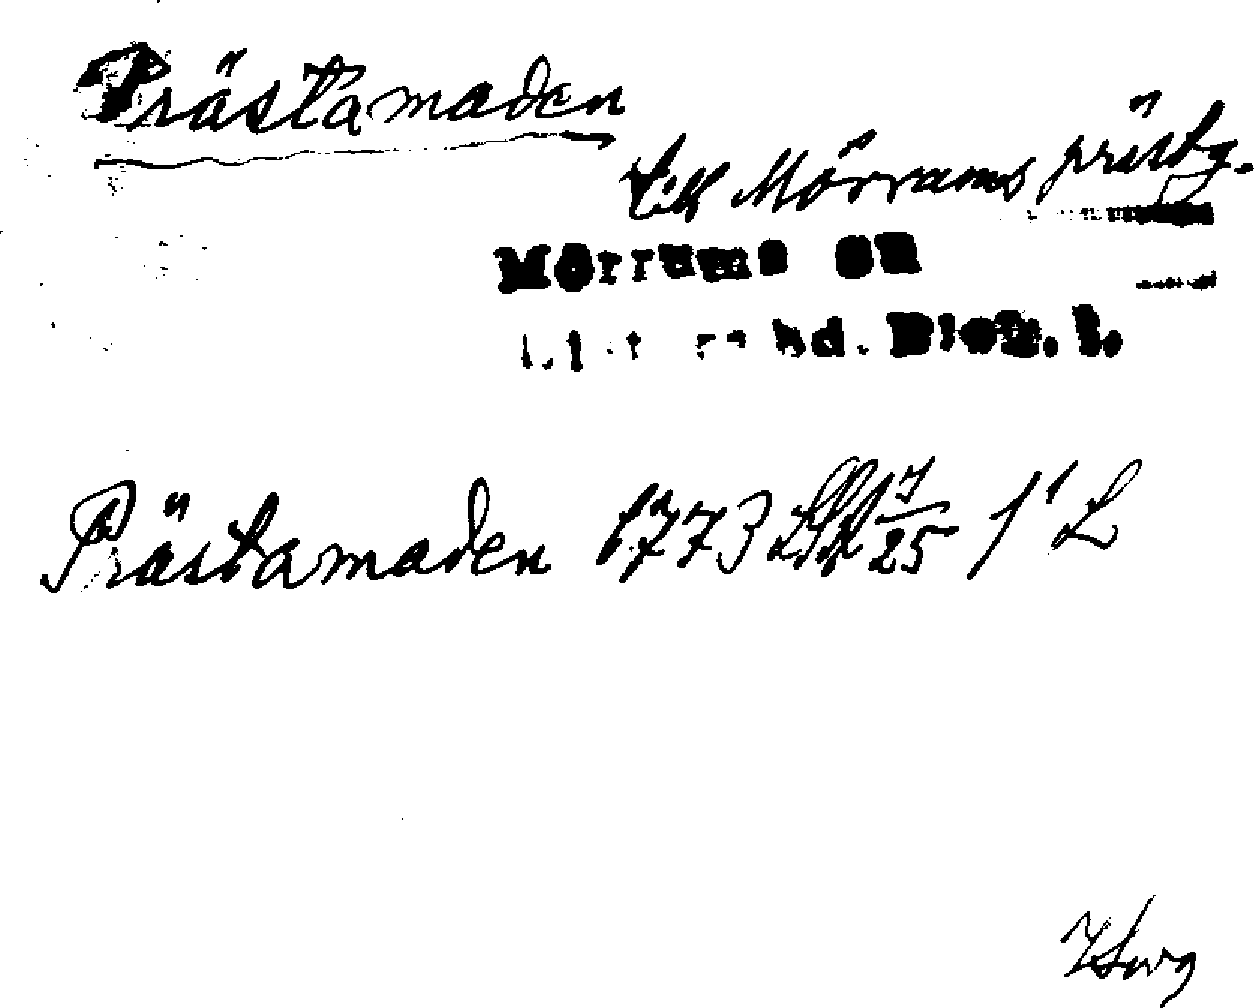 Prästamaden
till Mörrums prästg.
Mörrums sn
Listers hd. Blek. l.
Prästamaden 1773 7/25 1' L